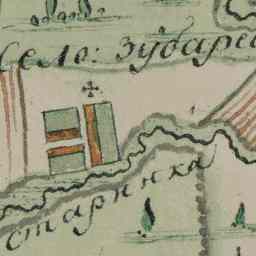 село: Зубарев
старинка